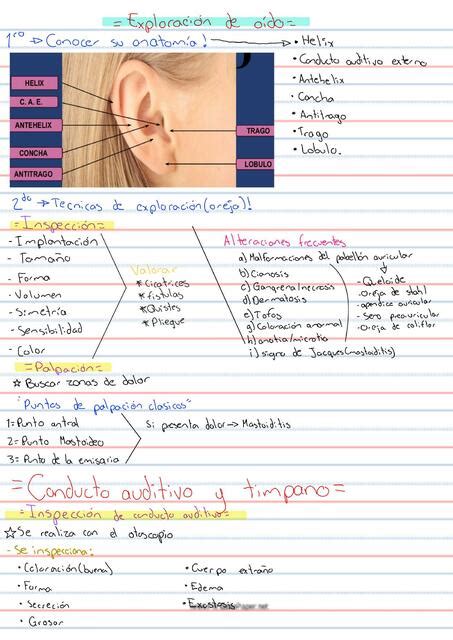 = Exploración de oído =
1ro → Conocer su anatomía!
• Helix
• Conducto auditivo externo
• Antehelix
• Concha
• Antitrago
• Trago
• Lobulo.
HELIX
C. A. E.
ANTEHELIX
CONCHA
ANTITRAGO
TRAGO
LOBULO
2do → Tecnicas de exploración (oreja)!
= Inspección =
- Implantación
- Tamaño
- Forma
- Volumen
- Simetría
- Sensibilidad
- Color
Valorar
* cicatrices
* fistulas
* Quistes
* Pliegue
Alteraciones frecuentes
a) Malformaciones del pabellón auricular
b) Cianosis
c) Gangrena/necrosis
d) Dermatosis
e) Tofos
g) Coloración anormal
h) anotia/microtia
i) signo de Jacques (mastoiditis)
- Queloide
- oreja de stahl
- apendice auricular
- Seno preauricular
- Oreja de coliflor
= Palpación =
☆ Buscar zonas de dolor
"Puntos de palpación clasicos"
1= Punto antral
2= Punto Mastoideo
3= Punto de la emisaria
Si presenta dolor → Mastoiditis
= Conducto auditivo y timpano =
= Inspección de conducto auditivo =
☆ Se realiza con el otoscopio
- Se inspecciona:
• Coloración (buena)
• Forma
• Secreción
• Grosor
• Cuerpo extraño
• Edema
• Exostosis